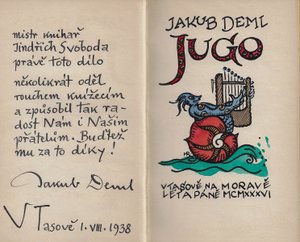 mistr knihař
Jindřich Svoboda
právě toto dílo
několikrát oděl
rouchem knížecím
a způsobil tak ra-
dost Nám i Našim
přátelům. Budtež
mu za to díky!
Jakub Deml
V Tasově 1. VIII. 1938
JAKUB DEML
JUGO
V TASOVĚ NA MORAVĚ
LÉTA PÁNĚ MCMXXXVI